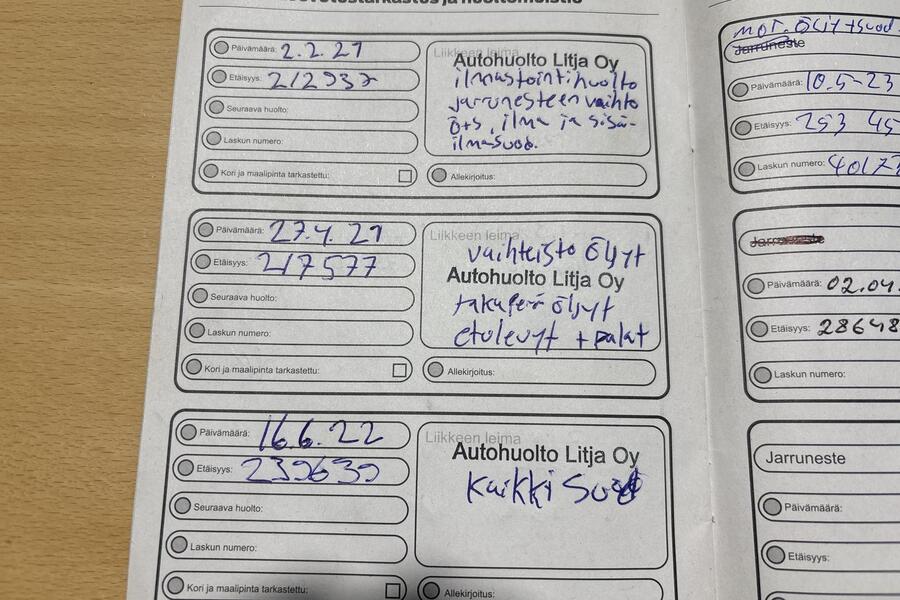 Päivämäärä: 2.2.21
Etäisyys: 212937
Seuraava huolto:
Laskun numero:
Kori ja maalipinta tarkastettu:
Liikkeen leima
Autohuolto Litja Oy
ilmastointihuolto
jarrunesteen vaihto
ö+s, ilma ja sisä-
ilmasuod.
Allekirjoitus:
Päivämäärä: 27.4.21
Etäisyys: 217577
Seuraava huolto:
Laskun numero:
Kori ja maalipinta tarkastettu:
Liikkeen leima
vaihteisto öljyt
Autohuolto Litja Oy
takaperä öljyt
etulevyt + palat
Allekirjoitus:
Päivämäärä: 16.6.22
Etäisyys: 239639
Seuraava huolto:
Laskun numero:
Kori ja maalipinta tarkastettu:
Liikkeen leima
Autohuolto Litja Oy
Kaikki
Allekirjoitus:
MOT. Öljy+suod.
Jarruneste
Päivämäärä: 10.5-23
Etäisyys: 253 45
Laskun numero: 40177
Jarruneste
Päivämäärä: 02.04.
Etäisyys: 28648
Laskun numero:
Jarruneste
Päivämäärä:
Etäisyys: